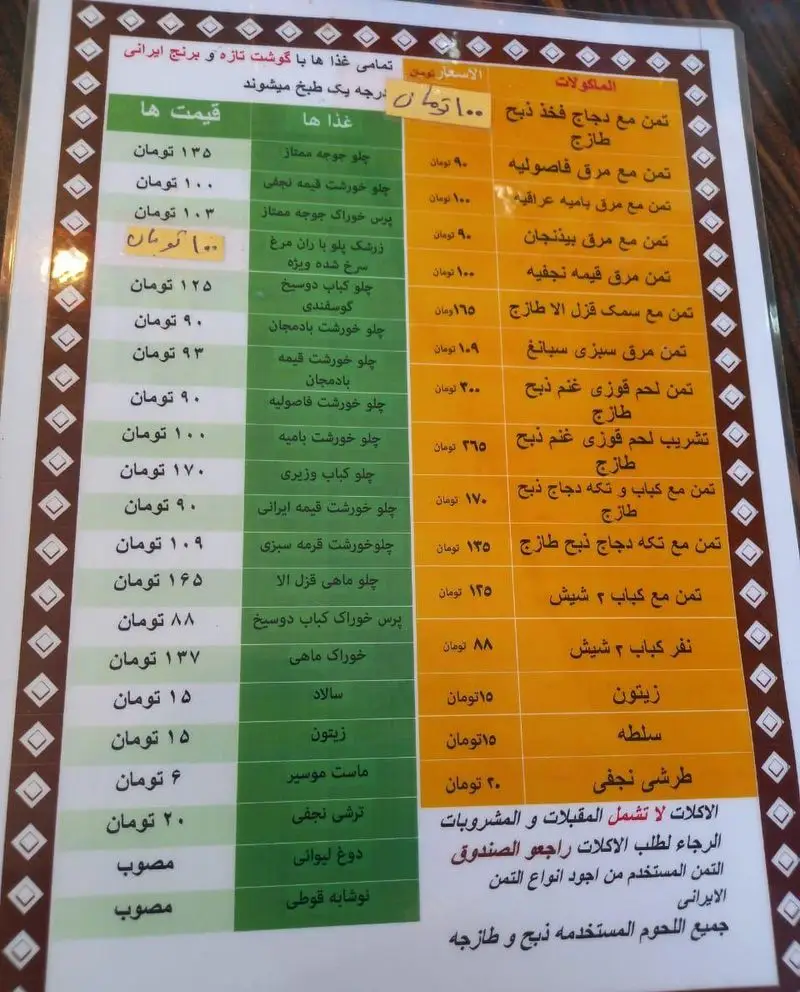 الماكولات الاسعار تومان
تمن مع دجاج فخذ ذبح طازج ۱۰۰ تومان
تمن مع مرق فاصولیه ۹۰ تومان
تمن مع مرق بامیه عراقیه ۱۰۰ تومان
تمن مع مرق بیذنجان ۹۰ تومان
تمن مرق قیمه نجفیه ۱۰۰ تومان
تمن مع سمک قزل الا طازج ۱۶۵ تومان
تمن مرق سبزی سبانغ ۱۰۹ تومان
تمن لحم قوزی غنم ذبح طازج ۳۰۰ تومان
تشریب لحم قوزی غنم ذبح طازج ۲۶۵ تومان
تمن مع کباب و تکه دجاج ذبح طازج ۱۷۰ تومان
تمن مع تکه دجاج ذبح طازج ۱۳۵ تومان
تمن مع کباب ۲ شیش ۱۲۵ تومان
نفر کباب ۲ شیش ۸۸ تومان
زیتون ۱۵تومان
سلطه ۱۵تومان
طرشی نجفی ۲۰ تومان
الاکلات لا تشمل المقبلات و المشروبات
الرجاء لطلب الاکلات راجعو الصندوق
التمن المستخدم من اجود انواع التمن
الایرانی
جمیع اللحوم المستخدمه ذبح و طازجه
تمامی غذا ها با گوشت تازه و برنج ایرانی
درجه یک طبخ میشوند
غذا ها قیمت ها
چلو جوجه ممتاز ۱۳۵ تومان
چلو خورشت قیمه نجفی ۱۰۰ تومان
پرس خوراک جوجه ممتاز ۱۰۳ تومان
زرشک پلو با ران مرغ سرخ شده ویژه ۱۰۰ تومان
چلو کباب دوسیخ گوسفندی ۱۲۵ تومان
چلو خورشت بادمجان ۹۰ تومان
چلو خورشت قیمه بادمجان ۹۳ تومان
چلو خورشت فاصولیه ۹۰ تومان
چلو خورشت بامیه ۱۰۰ تومان
چلو کباب وزیری ۱۷۰ تومان
چلو خورشت قیمه ایرانی ۹۰ تومان
چلوخورشت قرمه سبزی ۱۰۹ تومان
چلو ماهی قزل الا ۱۶۵ تومان
پرس خوراک کباب دوسیخ ۸۸ تومان
خوراک ماهی ۱۳۷ تومان
سالاد ۱۵ تومان
زیتون ۱۵ تومان
ماست موسیر ۶ تومان
ترشی نجفی ۲۰ تومان
دوغ لیوانی مصوب
نوشابه قوطی مصوب